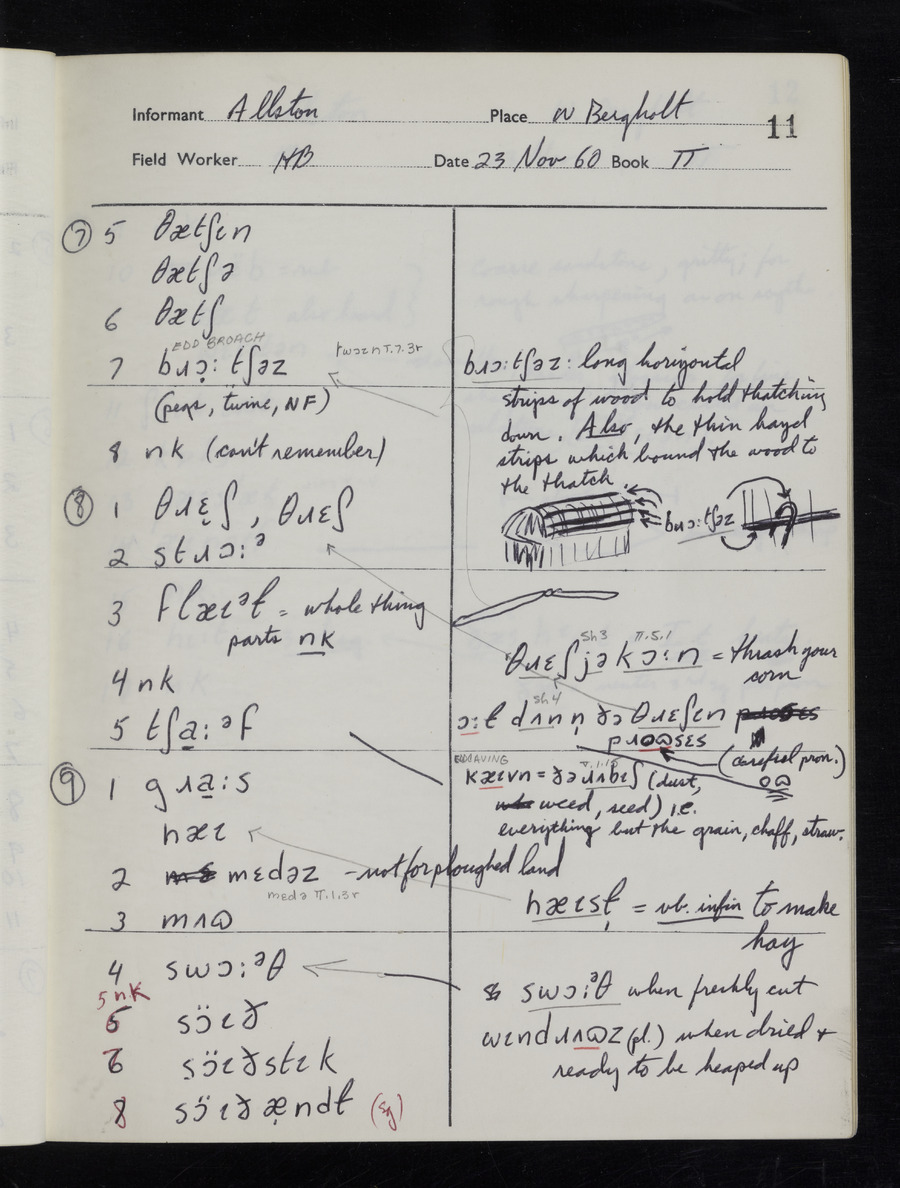 Informant Allston Place W Bergholt
11
Field Worker HB Date 23 Nov 60 Book II
⑦ 5 θætʃɩn
θætʃə
6 θætʃ
EDD BROACH
7 bɹɔ̣ː tʃəz
(pegs, twine, NF)
8 nk (can't remember)
⑧ 1 θɹɛ̣ʃ, θɹɛʃ
2 stɹɔːᵊ
3 flæɩᵊɫ = whole thing
parts nk
4 nk
5 tʃa̱ːᵊf
⑨ 1 gɹa̱ːs
hæɩ
2 mɛdəz - not for ploughed land
mɛdə II.1.3r
3 mʌɷ
4 swɔːᵊθ
5 nk
6 sɔ̈ɩð
7 sɔ̣̈ɩðstɩk
8 sɔ̈ɩð æ̣ndɫ (sg)
bɹɔːtʃəz: long horizontal
strips of wood to hold thatching
down. Also, the thin hazel
strips which bound the wood to
the thatch.
bɹɔːtʃəz
sh 3 II.5.1
θɹɛʃ jə kɔːn = thrash your
corn
sh 4
ɔːɫ dʌn n̩ ðə θɹɛʃɩn
pɹʌɷsɛs
(careful pron.)
oɷ
kæɩvn = ðə ɹʌbɩʃ (dust,
weed, seed) i.e.
everything but the grain, chaff, straw.
hæɩsɫ̩ = vb. infin to make
hay
swɔːᵊθ when freshly cut
wɩndɹʌɷz (pl.) when dried +
ready to be heaped up